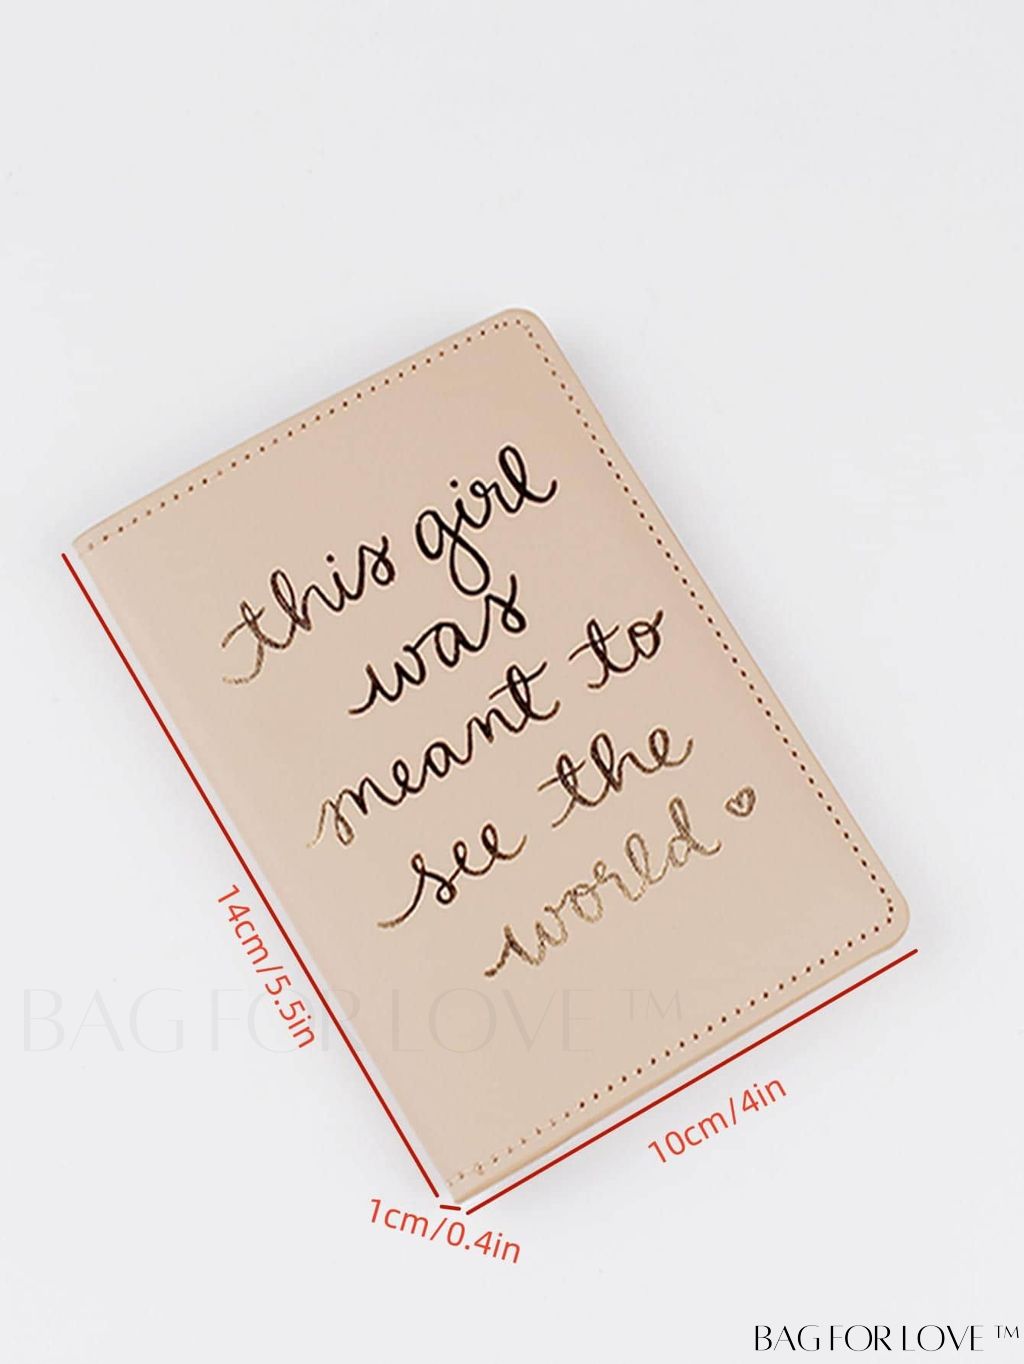 this girl
was
meant to
see the
world
14cm/5.5in
BAG FOR LOVE ™
10cm/4in
1cm/0.4in
BAG FOR LOVE ™